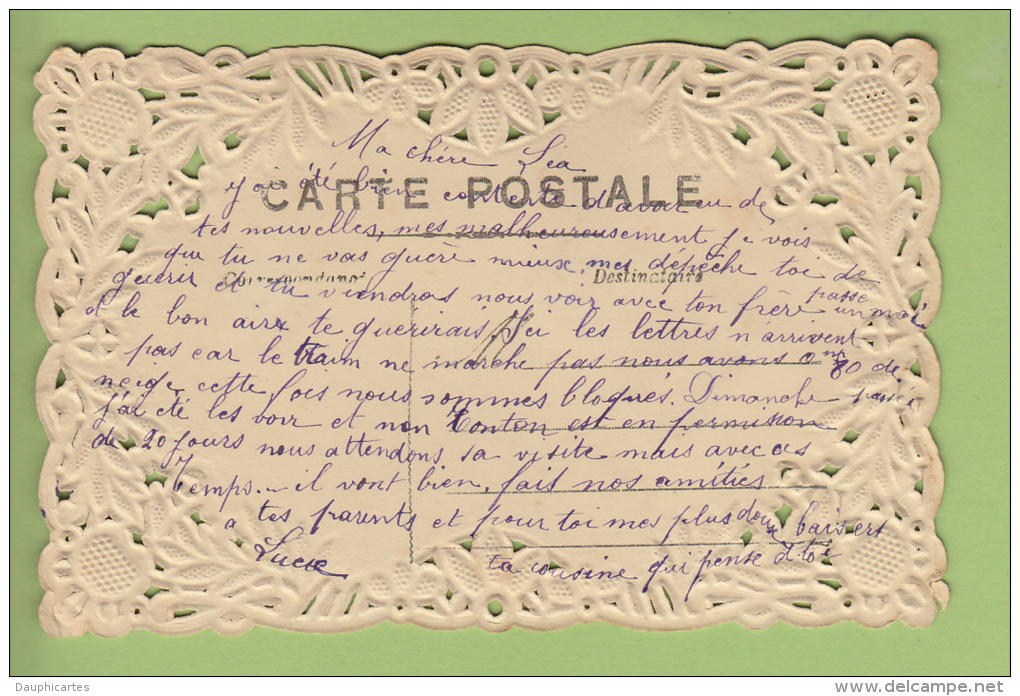 Ma chère Léa
CARTE POSTALE
j'ai été bien contente d'avoir eu de
tes nouvelles, mes malheureusement je vois
que tu ne vas guère mieux, mes depêche toi de
Correspondance
Destinataire
guerir et tu viendras nous voir avec ton frère passé un moi
et le bon aire te guerirais. Ici les lettres n'arrivent
pas car le train ne marche pas nous avons 0m80 de
neige cette fois nous sommes bloqués. Dimanche passé
j'ai été les voir et mon Tonton est en permission
de 20 jours nous attendons sa visite mais avec ces
temps.. il vont bien, fait nos amitiés
a tes parents et pour toi mes plus doux baisers
ta cousine qui pense à toi
Lucie
Dauphicartes
www.delcampe.net